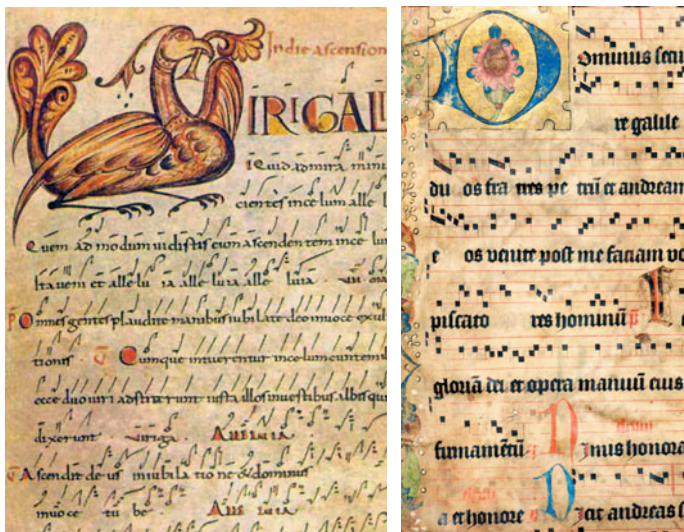 In die ascension
IRIGALI
Quid admira mini
cientes in celum alle l
Quem ad modum uidistis eum ascendentem in ce lu
alle lu ia alle luia alle luia
Omnes gentes plaudite manibus iubilate deo inuoce exul
tionis. Cumque intuerentur in celum euntem
ecce duo uiri iuxta illos in uestibus albis qui
dixerunt uiriga. Alleluia
Ascendit deus in iubila tio ne & dominus
in uoce tu be. Alleluia
Ominus secu
re galile
du os fra tres pe trū et andream
e os venite post me faciam vo
piscato res hominū
gloriā dei et opera manuū eius
firmamētū Nimus honora
a et honore Dicit andreas